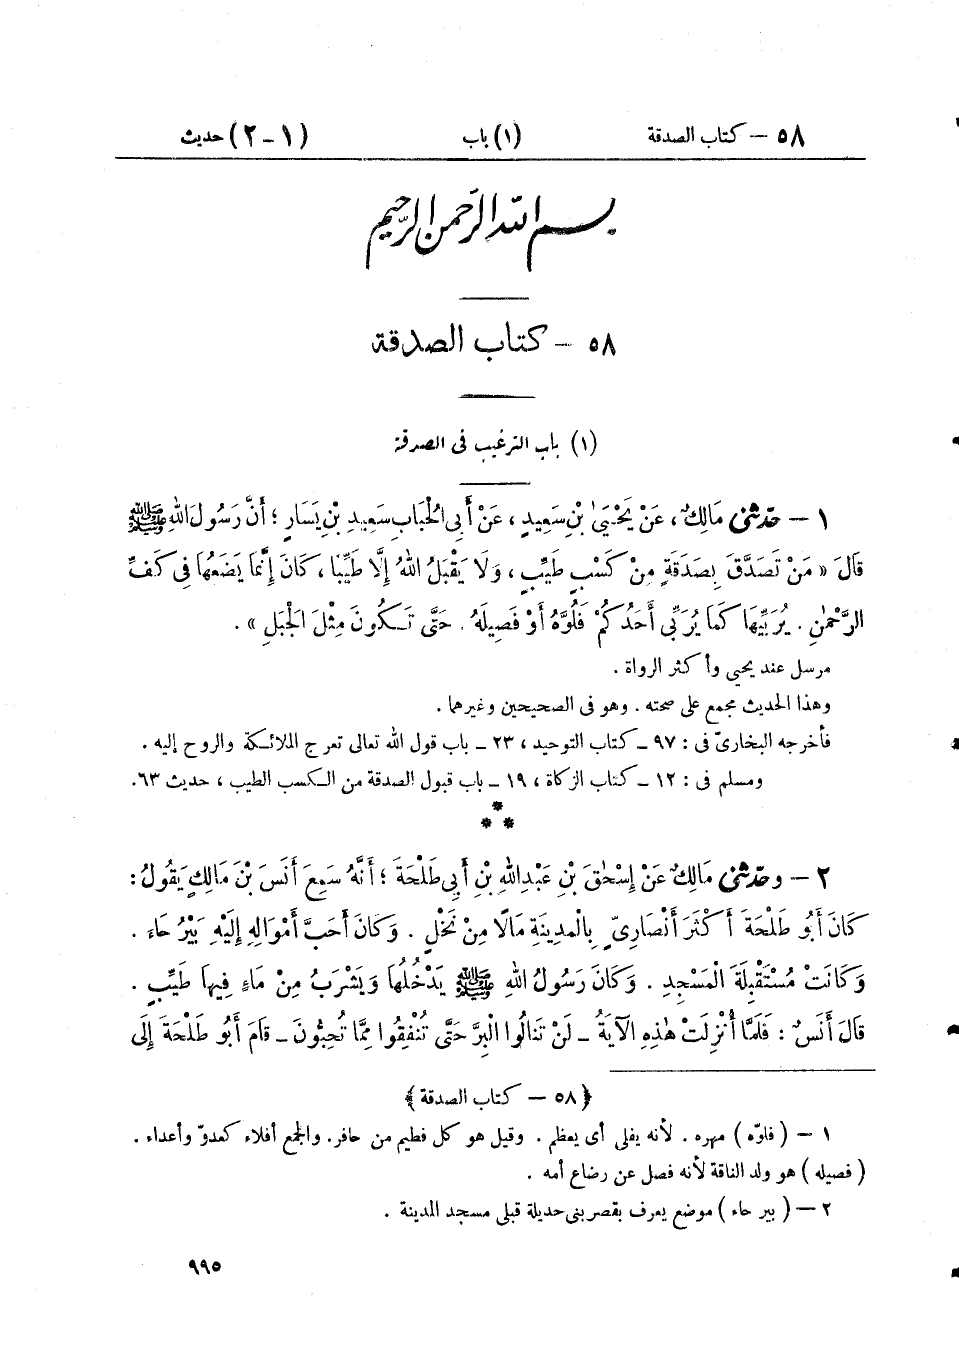 ٥٨ – كتاب الصدقة (١) باب (١ – ٢) حديث
بسم الله الرحمن الرحيم
٥٨ – كتاب الصدقة
(١) باب الترغيب فى الصدقة
١ – حدّثنى مَالِكٌ، عَنْ يَحْيَىٰ بْنِ سَعِيدٍ، عَنْ أَبِي الْحُبَابِ سَعِيدِ بْنِ يَسَارٍ؛ أَنَّ رَسُولَ اللهِ ﷺ
قَالَ «مَنْ تَصَدَّقَ بِصَدَقَةٍ مِنْ كَسْبٍ طَيِّبٍ، وَلَا يَقْبَلُ اللهُ إِلَّا طَيِّبًا، كَانَ إِنَّمَا يَضَعُهَا فِى كَفِّ
الرَّحْمٰنِ. يُرَبِّيهَا كَمَا يُرَبِّى أَحَدُكُمْ فَلُوَّهُ أَوْ فَصِيلَهُ. حَتَّى تَكُونَ مِثْلَ الْجَبَلِ».
مرسل عند يحيى وأكثر الرواة.
وهذا الحديث مجمع على صحته. وهو فى الصحيحين وغيرهما.
فأخرجه البخارىّ فى: ٩٧ – كتاب التوحيد، ٢٣ – باب قول الله تعالى تعرج الملائكة والروح إليه.
ومسلم فى: ١٢ – كتاب الزكاة، ١٩ – باب قبول الصدقة من الكسب الطيب، حديث ٦٣.
***
٢ – وحدّثنى مَالِكٌ عَنْ إِسْحٰقَ بْنِ عَبْدِ اللهِ بْنِ أَبِي طَلْحَةَ؛ أَنَّهُ سَمِعَ أَنَسَ بْنَ مَالِكٍ يَقُولُ:
كَانَ أَبُو طَلْحَةَ أَكْثَرَ أَنْصَارِىٍّ بِالْمَدِينَةِ مَالًا مِنْ نَخْلٍ. وَكَانَ أَحَبَّ أَمْوَالِهِ إِلَيْهِ بَيْرُ حَاءَ.
وَكَانَتْ مُسْتَقْبِلَةَ الْمَسْجِدِ. وَكَانَ رَسُولُ اللهِ ﷺ يَدْخُلُهَا وَيَشْرَبُ مِنْ مَاءٍ فِيهَا طَيِّبٍ.
قَالَ أَنَسٌ: فَلَمَّا أُنْزِلَتْ هٰذِهِ الْآيَةُ – لَنْ تَنَالُوا الْبِرَّ حَتَّى تُنْفِقُوا مِمَّا تُحِبُّونَ – قَامَ أَبُو طَلْحَةَ إِلَى
﴿٥٨ – كتاب الصدقة﴾
١ – (فلوّه) مهره. لأنه يفلى أى يعظم. وقيل هو كل فطيم من حافر. والجمع أفلاء كعدوّ وأعداء.
(فصيله) هو ولد الناقة لأنه فصل عن رضاع أمه.
٢ – (بير حاء) موضع يعرف بقصر بنى حديلة قبلى مسجد المدينة.
٩٩٥